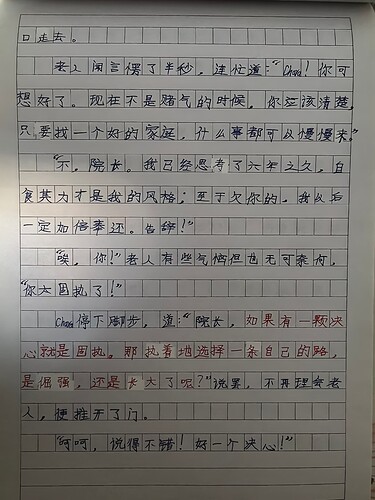 口走去。
老人闻言愣了半秒，连忙道："Chara！你可
想好了。现在不是赌气的时候，你应该清楚，
只要找一个好的家庭，什么事都可以慢慢来"
"不，院长。我已经思考了六年之久，自
食其力才是我的风格；至于欠你的，我以后
一定加倍奉还。告辞！"
"唉，你！"老人有些气恼但也无可奈何，
"你太固执了！"
Chara停下脚步，道："院长，如果有一颗决
心就是固执。那执着地选择一条自己的路，
是倔强，还是长大了呢？"说罢，不再理会老
人，便推开了门。
"呵呵，说得不错！好一个决心！"